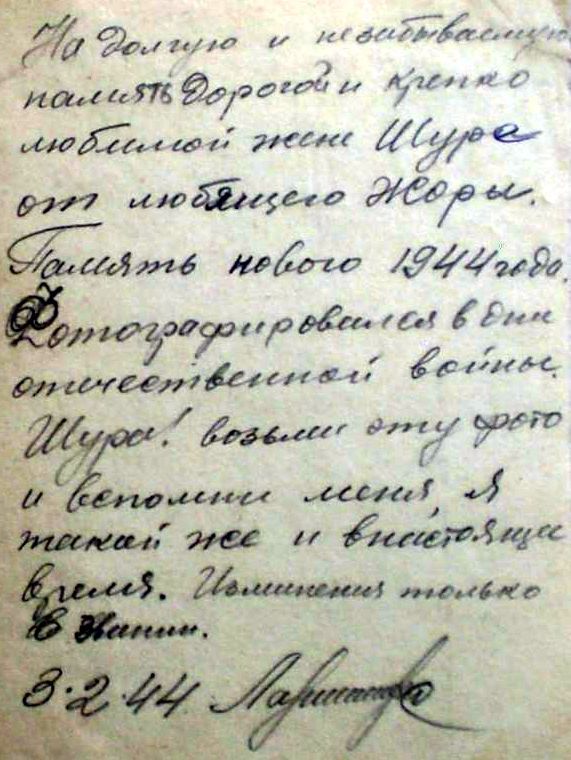 На долгую и незабываемую
память Дорогой и крепко
любимой жене Шура
от любящего Жоры.
Память нового 1944 года.
Фотографировался в дни
отечественной войны.
Шура! возьми эту фото
и вспомни меня, я
такой же и внастояще
время. Изминения только
в звании.
3.2.44